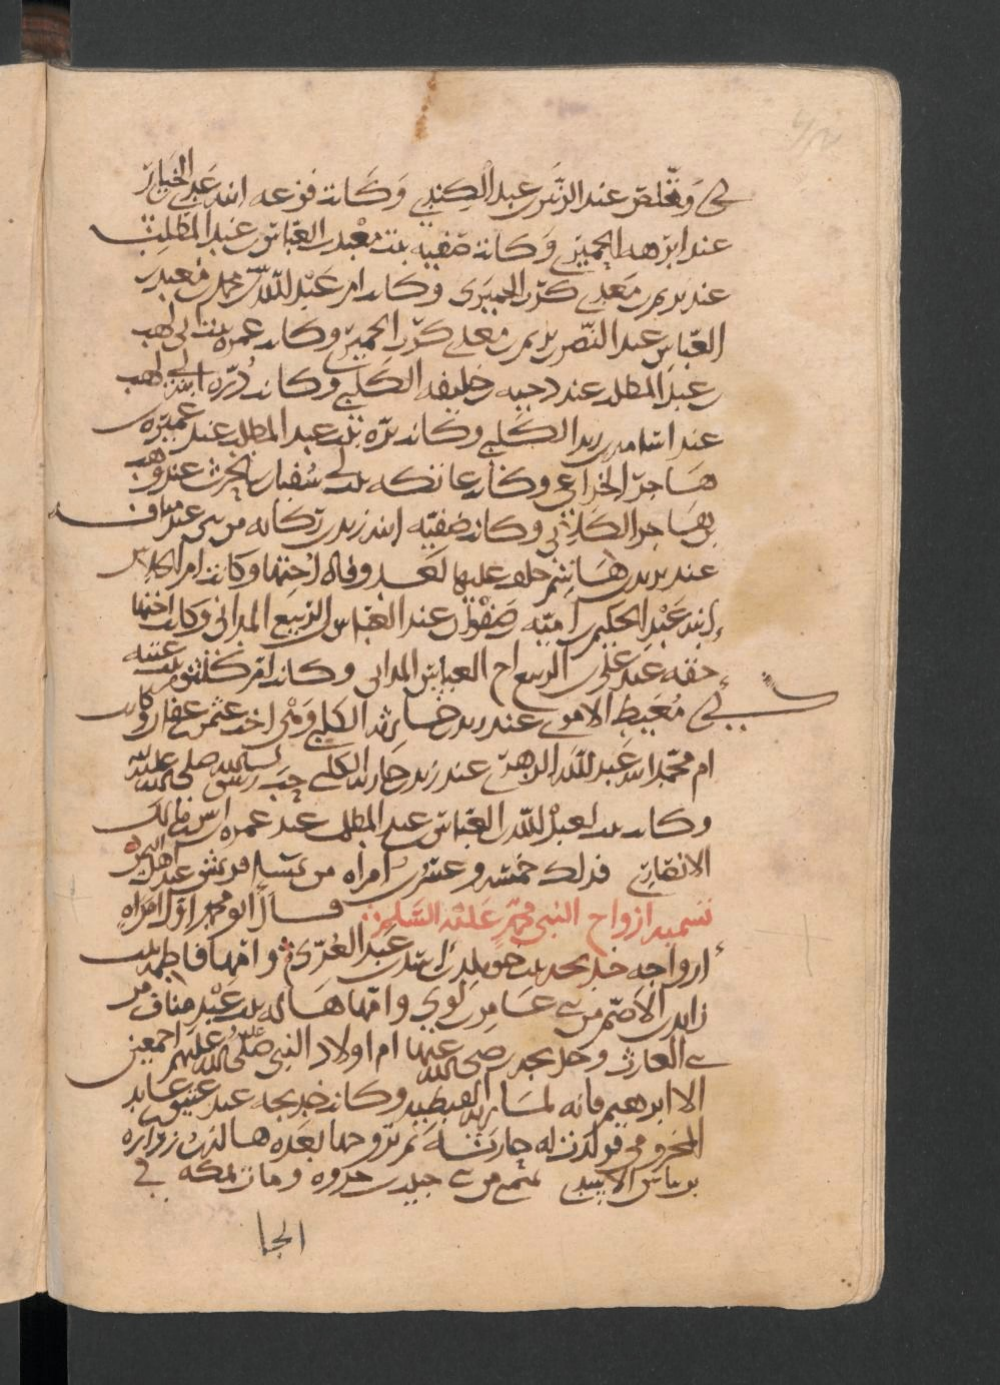 عند ابرهه الحميري وكانت صفيه بنت معبد بن العباس بن عبد المطلب
عند يريم بن معدي كرب الحميري وكانت ام عبد الله بنت محمد بن معبد بن
العباس عند النضر بن يريم بن معدي كرب الحميري وكانت عمره بنت ابي لهب
بن عبد المطلب عند دحيه بن خليفه الكلبي وكانت دره ابنة ابي لهب
عند اسامه بن زيد الكلبي وكانت بره بنت عبد المطلب عند عميرة بن
هاجر الخزاعي وكانت عاتكه بنت ابي سفيان بن الحرث عند وهب
بن هاجر الكلابي وكانت صفيه ابنة زيد بن ركانه من بني عبد مناف
عند يزيد بن هاشم خلف عليها بعد وفاة اختها وكانت ام
ابنة عبد الحكيم بن اميه بن صفوان عند العباس بن الربيع المداني وكانت اختها
حقه عند علي بن الربيع اخ العباس المداني وكانت ام كلثوم بنت عقبه بن
ابي معيط الاموي عند زيد بن حارثه الكلبي وهي اخت عثمن بن عفان وكانت
ام محمد ابنة عبد الله الزهري عند زيد بن حارثه الكلبي حب رسول الله صلى الله عليه
وكانت بنت لعبد الله بن العباس بن عبد المطلب عند عمرو بن انس بن مالك
الانصاري فذلك خمسه وعشرين امراه من نسا قريش عند اهل اليمن
تسميه ازواج النبي محمد عليه السلم قال ابو محمد اول امراه
ازواجه خديجه بنت خويلد بن اسد بن عبد العزى وامها فاطمه بنت
زايده بن الاصم من بني عامر بن لوي وامها هاله بنت عبد مناف من
بني الحارث وخديجه رضي الله عنها ام اولاد النبي صلى الله عليه وعليهم اجمعين
الا ابرهيم فانه لماريه القبطيه وكانت خديجه عند عتيق بن عابد
المخزومي فولدت له جاريه ثم تزوجها بعده هاله بن زراره
بن نباش الاسيدي تميم من بني حبيب بن جروه ومات بمكه في
الجا